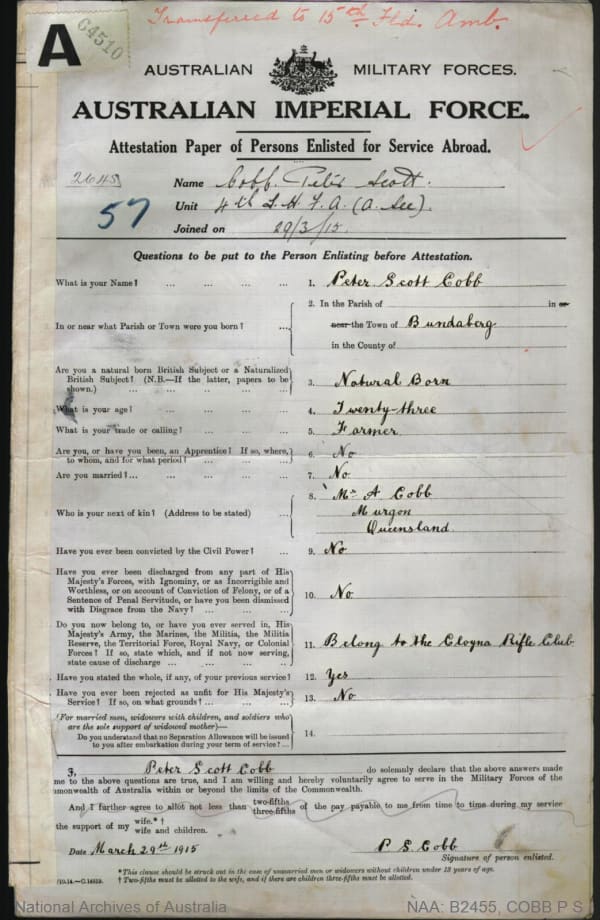 Transferred to 15th Fld. Amb.
A
C4510
AUSTRALIAN MILITARY FORCES.
AUSTRALIAN IMPERIAL FORCE.
Attestation Paper of Persons Enlisted for Service Abroad.
2645
57
Name Cobb. Peter Scott.
Unit 4th L. H. F. A. (A. Sec).
Joined on 29/3/15.
Questions to be put to the Person Enlisting before Attestation.
What is your Name? ... ... ... ... 1. Peter Scott Cobb
2. In the Parish of in or
In or near what Parish or Town were you born? ... near the Town of Bundaberg
in the County of
Are you a natural born British Subject or a Naturalized
British Subject? (N.B.—If the latter, papers to be
shown.) ... ... ... ... 3. Natural Born
What is your age? ... ... ... ... 4. Twenty-three
What is your trade or calling? ... ... ... 5. Farmer
Are you, or have you been, an Apprentice? If so, where,
to whom, and for what period? ... ... ... 6. No
Are you married?... ... ... ... ... 7. No
8. Mr A Cobb
Who is your next of kin? (Address to be stated) ... Murgon
Queensland
Have you ever been convicted by the Civil Power? ... 9. No
Have you ever been discharged from any part of His
Majesty's Forces, with Ignominy, or as Incorrigible and
Worthless, or on account of Conviction of Felony, or of a
Sentence of Penal Servitude, or have you been dismissed
with Disgrace from the Navy? ... ... ... 10. No
Do you now belong to, or have you ever served in, His
Majesty's Army, the Marines, the Militia, the Militia
Reserve, the Territorial Force, Royal Navy, or Colonial
Forces? If so, state which, and if not now serving,
state cause of discharge ... ... ... 11. Belong to the Cloyna Rifle Club
Have you stated the whole, if any, of your previous service? 12. Yes
Have you ever been rejected as unfit for His Majesty's
Service? If so, on what grounds? ... ... 13. No
(For married men, widowers with children, and soldiers who
are the sole support of widowed mother)—
Do you understand that no Separation Allowance will be issued
to you after embarkation during your term of service? ... 14.
I, Peter Scott Cobb do solemnly declare that the above answers made
me to the above questions are true, and I am willing and hereby voluntarily agree to serve in the Military Forces of the
mmonwealth of Australia within or beyond the limits of the Commonwealth.
And I further agree to allot not less than two-fifths three-fifths of the pay payable to me from time to time during my service
the support of my wife.* † wife and children.
Date March 29th 1915 P S Cobb
Signature of person enlisted.
*This clause should be struck out in the case of unmarried men or widowers without children under 18 years of age.
† Two-fifths must be allotted to the wife, and if there are children three-fifths must be allotted.
National Archives of Australia NAA: B2455, COBB P S